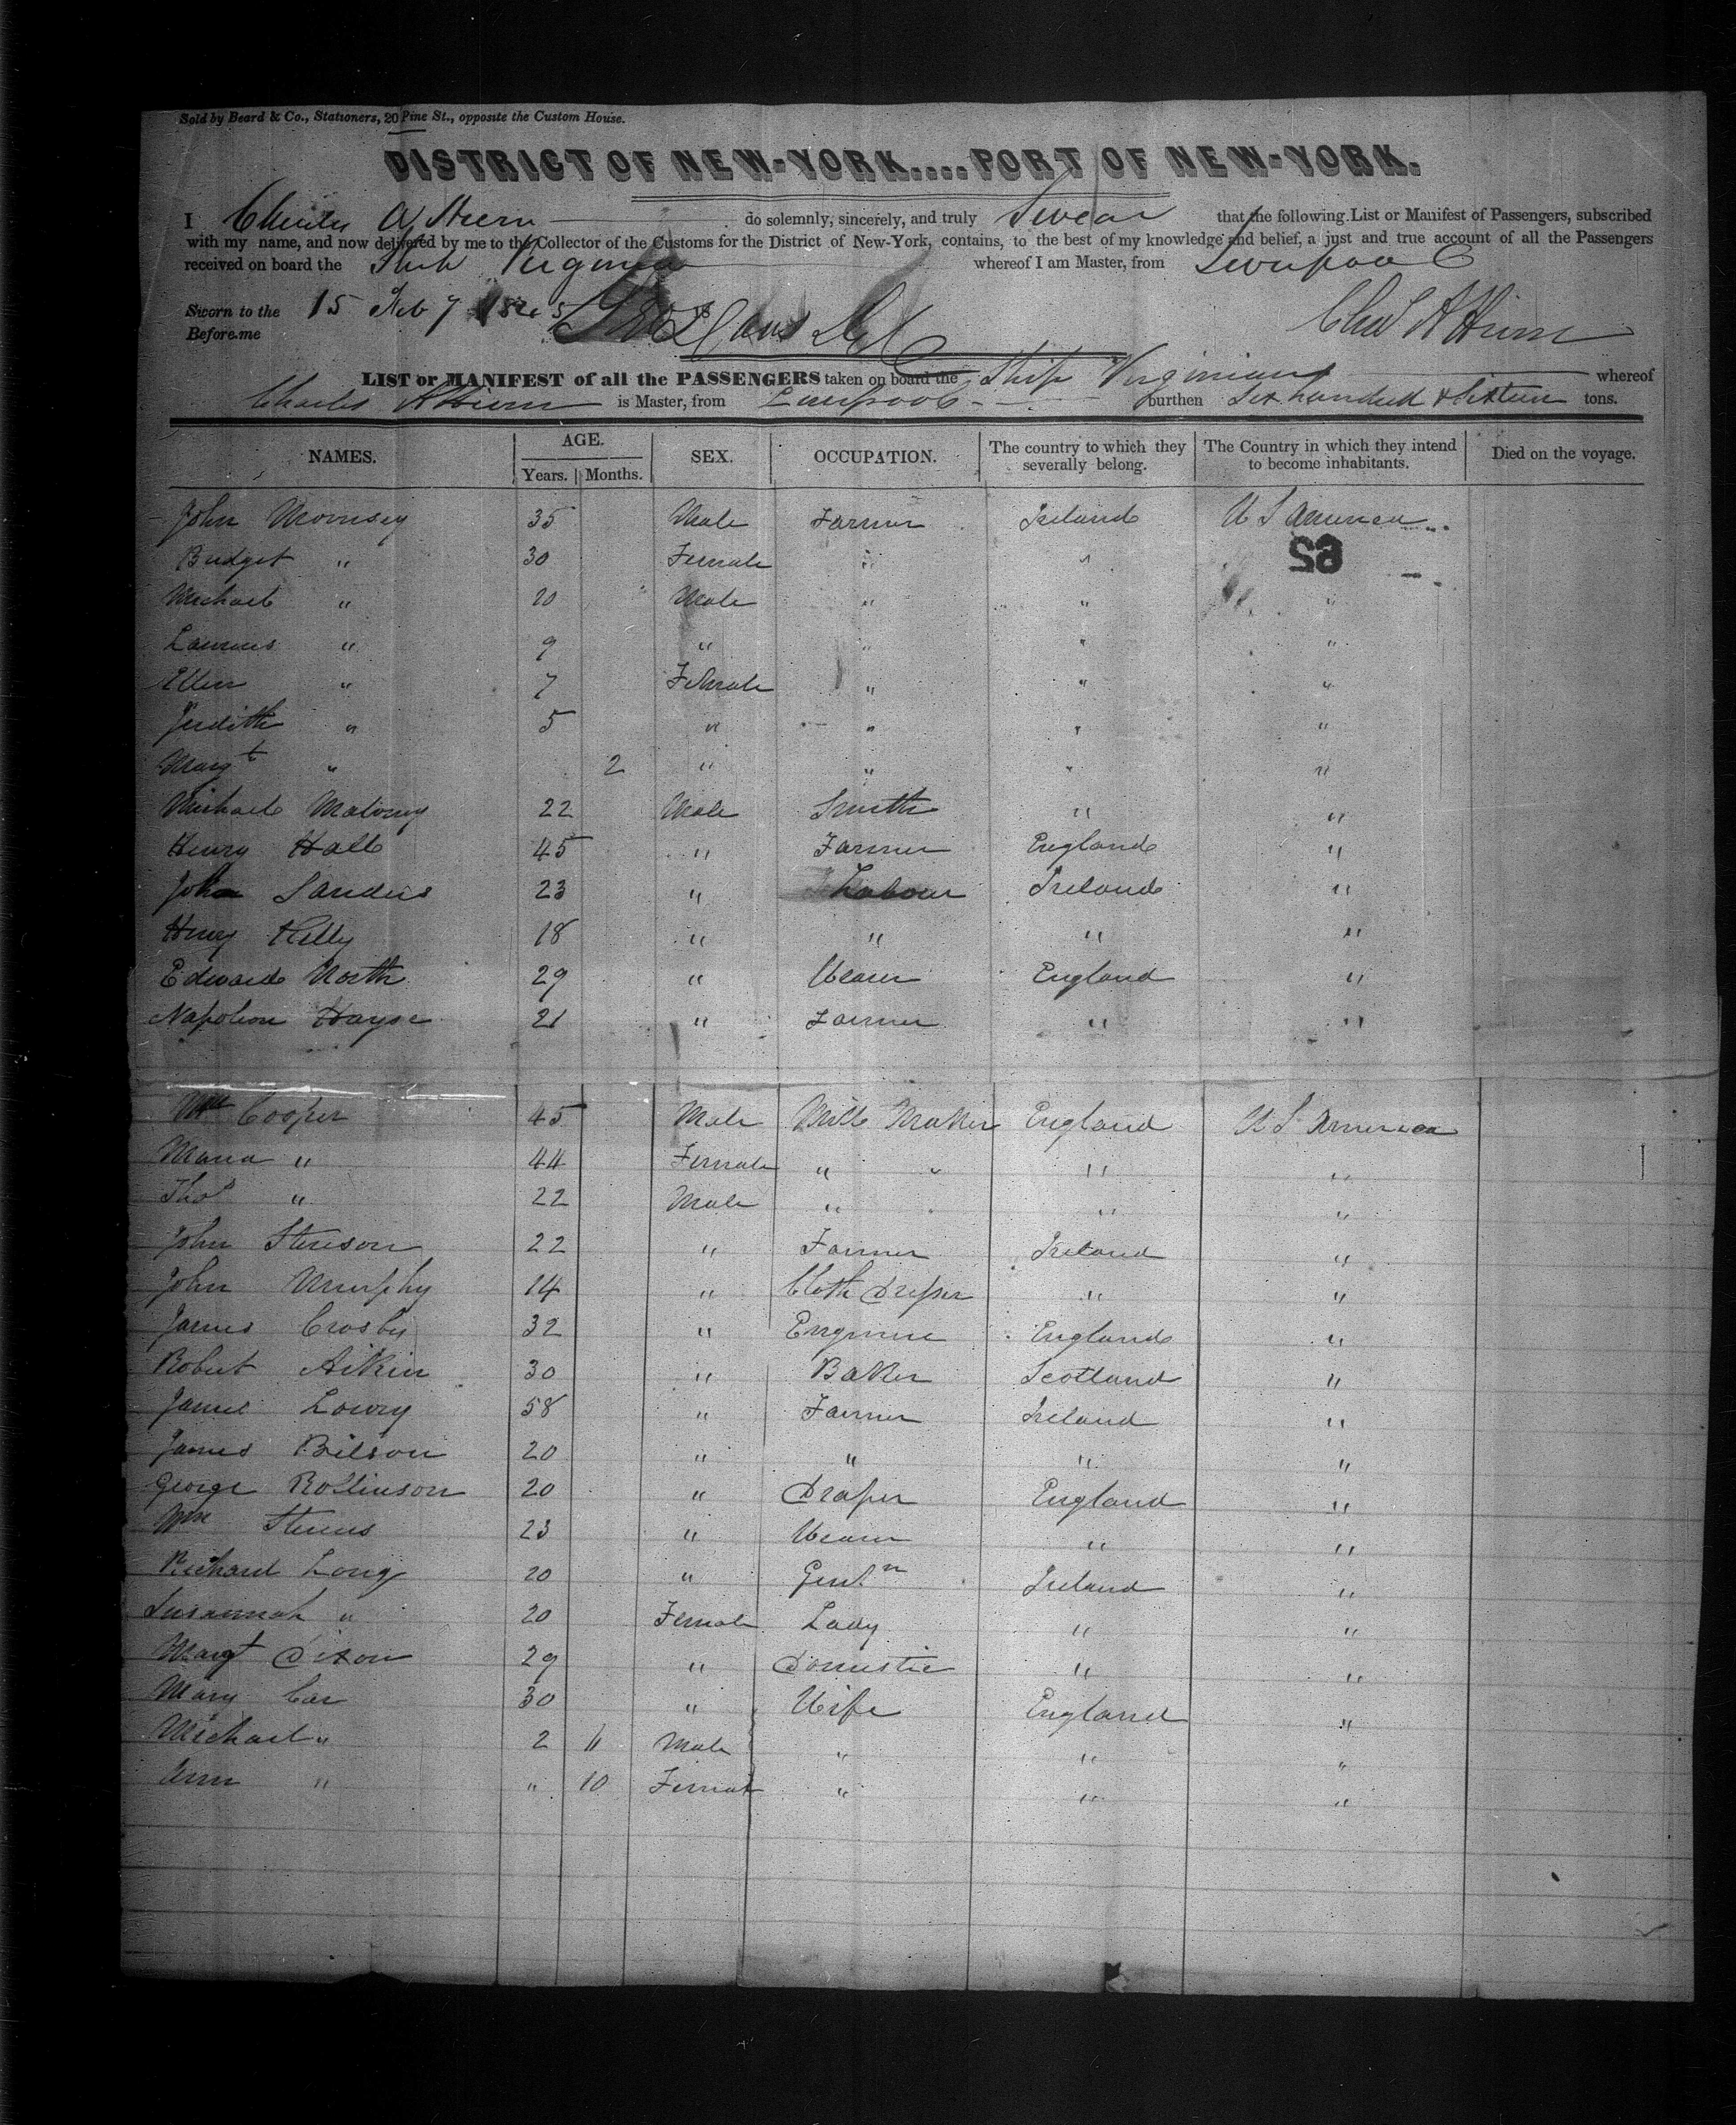 Sold by Beard & Co., Stationers, 20 Pine St., opposite the Custom House.
DISTRICT OF NEW-YORK....PORT OF NEW-YORK.
I Charles A do solemnly, sincerely, and truly Swear that the following List or Manifest of Passengers, subscribed
with my name, and now delivered by me to the Collector of the Customs for the District of New-York, contains, to the best of my knowledge and belief, a just and true account of all the Passengers
received on board the Ship Virginian whereof I am Master, from Liverpool
Sworn to the 15 Feby 1845
Before me
Chas A
LIST or MANIFEST of all the PASSENGERS taken on board the Ship Virginian whereof
Charles A is Master, from Liverpool burthen Six hundred & Sixteen tons.
NAMES. AGE. SEX. OCCUPATION. The country to which they severally belong. The Country in which they intend to become inhabitants. Died on the voyage.
Years. Months.
John 35 Male Farmer Ireland U S America
62
Bridget " 30 Female " "
Michael " Male " " "
" 9 " " " "
Ellen " 7 Female " " "
Judith " 5 " " " "
Margt " 2 " " " "
Michael Malony 22 Male Smith " "
Henry Hall 45 " Farmer England "
John Sanders 23 " Labour Ireland "
Henry Kelly 18 " " " "
Edward North 29 " England "
Napolion Hayse 21 " Farmer " "
Cooper 45 Male Mill Maker England U S America
Maria " 44 Female " " " "
Thos " 22 Male " " "
John 22 " Farmer Ireland "
John Murphy 14 " Cloth Draper " "
James Crosby 32 " England "
Robert Aitkin 30 " Baker Scotland "
James Lowry 58 " Farmer Ireland "
James Bilson 20 " " " "
George Rollinson 20 " Draper England "
Wm 23 " " "
Richard Long 20 " Gentn Ireland "
Susannah " 20 Female Lady " "
Margt Dixon 29 " Domestic " "
Mary Car 30 " Wife England "
Michael " 2 Male " " "
Ann " " 10 Female " " "